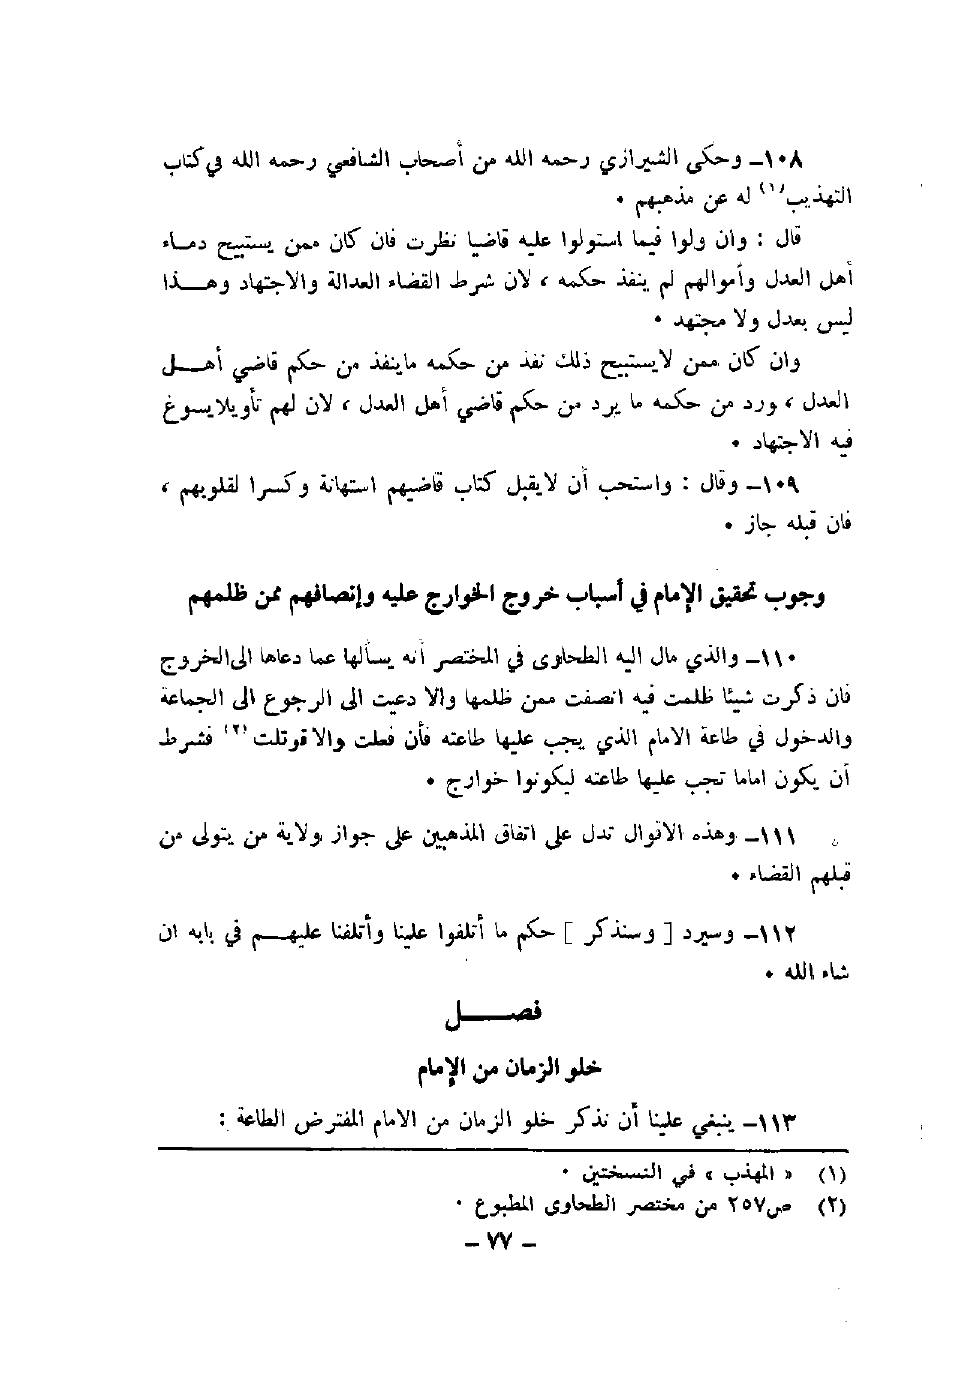 ١٠٨ـ وحكى الشيرازي رحمه الله من أصحاب الشافعي رحمه الله في كتاب
التهذيب(١) له عن مذهبهم ٠
قال : وان ولوا فيما استولوا عليه قاضيا نظرت فان كان ممن يستبيح دمـاء
أهل العدل وأموالهم لم ينفذ حكمه ، لان شرط القضاء العدالة والاجتهاد وهـــذا
ليس بعدل ولا مجتهد ٠
وان كان ممن لايستبيح ذلك نفذ من حكمه ماينفذ من حكم قاضي أهـــل
العدل ، ورد من حكمه ما يرد من حكم قاضي أهل العدل ، لان لهم تأويلايسوغ
فيه الاجتهاد ٠
١٠٩ـ وقال : واستحب أن لايقبل كتاب قاضيهم استهانة وكسرا لقلوبهم ،
فان قبله جاز ٠
وجوب تحقيق الإمام في أسباب خروج الخوارج عليه وإنصافهم ممن ظلمهم
١١٠ـ والذي مال اليه الطحاوى في المختصر أنه يسألها عما دعاها الى الخروج
فان ذكرت شيئا ظلمت فيه انصفت ممن ظلمها والا دعيت الى الرجوع الى الجماعة
والدخول في طاعة الامام الذي يجب عليها طاعته فأن فعلت والا قوتلت(٢) فشرط
أن يكون اماما تجب عليها طاعته ليكونوا خوارج ٠
١١١ـ وهذه الاقوال تدل على اتفاق المذهبين على جواز ولاية من يتولى من
قبلهم القضاء ٠
١١٢ـ وسيرد [ وسنذكر ] حكم ما أتلفوا علينا وأتلفنا عليهـــم في بابه ان
شاء الله ٠
فصـــــل
خلو الزمان من الإمام
١١٣ـ ينبغي علينا أن نذكر خلو الزمان من الامام المفترض الطاعة :
(١) « المهذب » في النسختين ٠
(٢) ص٢٥٧ من مختصر الطحاوى المطبوع ٠
ـ ٧٧ ـ